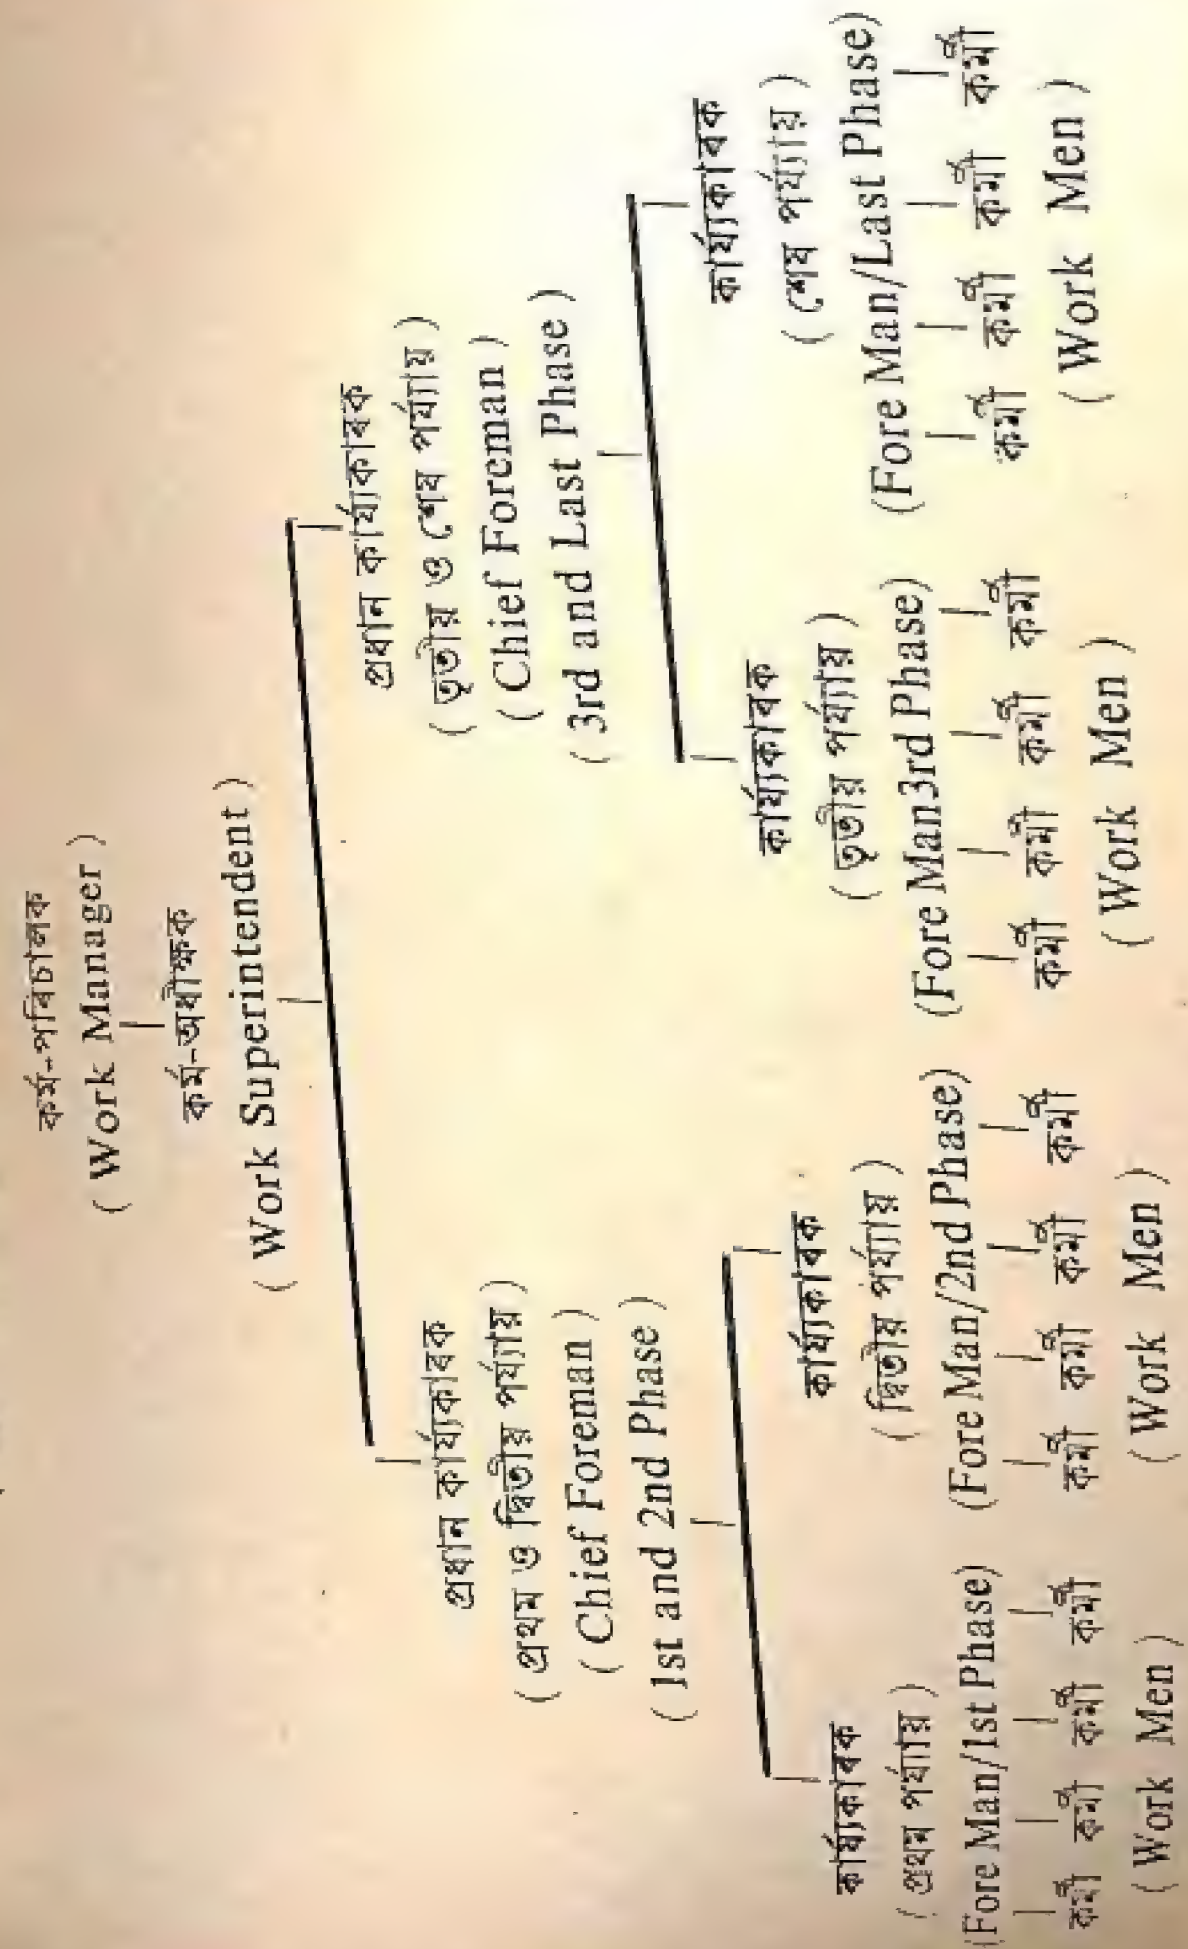 কৰ্ম-পৰিচালক
( Work Manager )
কৰ্ম-অধীক্ষক
( Work Superintendent )
প্ৰধান কাৰ্য্যকাৰক
( প্ৰথম ও দ্বিতীয় পৰ্য্যায় )
( Chief Foreman )
( 1st and 2nd Phase )
প্ৰধান কাৰ্য্যকাৰক
( তৃতীয় ও শেষ পৰ্য্যায় )
( Chief Foreman )
( 3rd and Last Phase )
কাৰ্য্যকাৰক
( প্ৰথম পৰ্য্যায় )
(Fore Man/1st Phase)
কৰ্মী কৰ্মী কৰ্মী কৰ্মী
( Work Men )
কাৰ্য্যকাৰক
( দ্বিতীয় পৰ্য্যায় )
(Fore Man/2nd Phase)
কৰ্মী কৰ্মী কৰ্মী কৰ্মী
( Work Men )
কাৰ্য্যকাৰক
( তৃতীয় পৰ্য্যায় )
(Fore Man3rd Phase)
কৰ্মী কৰ্মী কৰ্মী কৰ্মী
( Work Men )
কাৰ্য্যকাৰক
( শেষ পৰ্য্যায় )
(Fore Man/Last Phase)
কৰ্মী কৰ্মী কৰ্মী কৰ্মী
( Work Men )